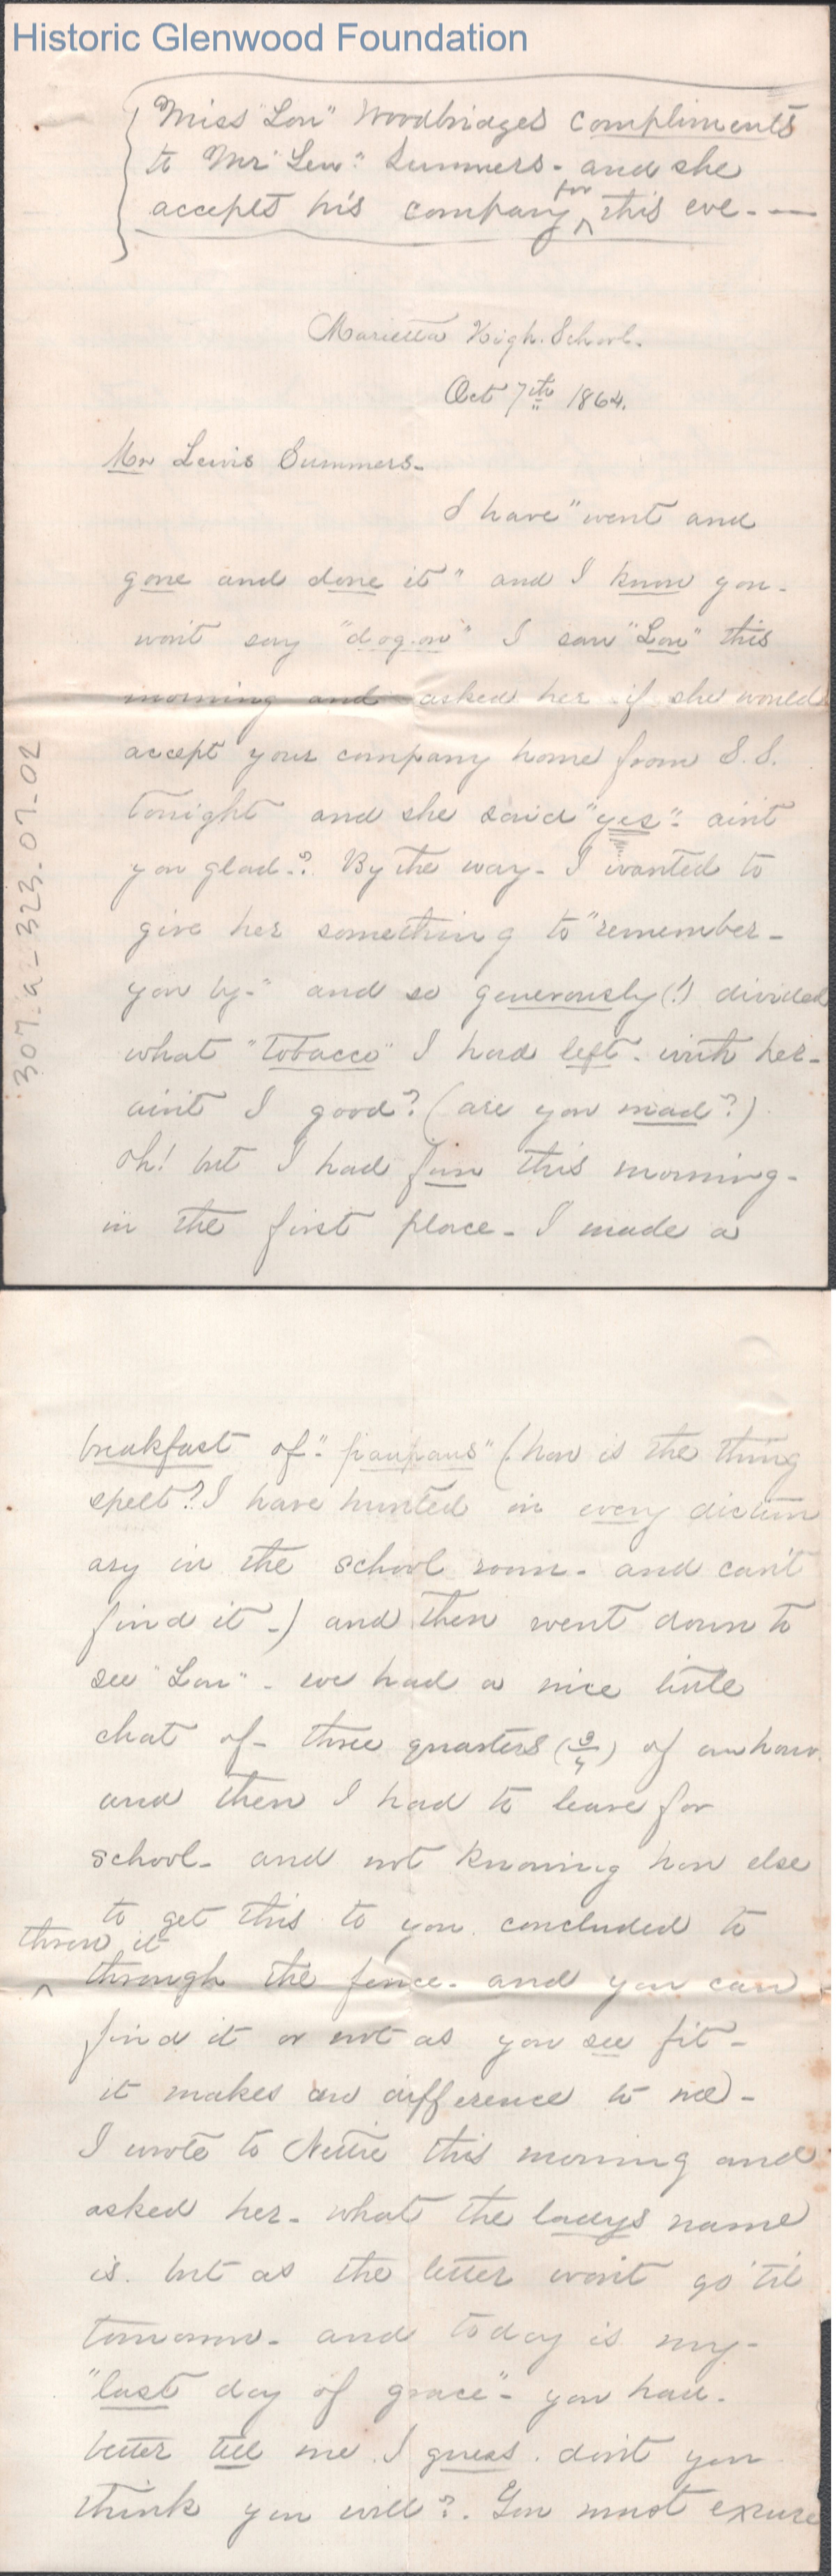 Historic Glenwood Foundation
Miss "Lou" Woodbridges compliments
to Mr "Lew" Summers - and she
accepts his company for this eve. —
Marietta High. School.
Oct 7th 1864.
Mr Lewis Summers.
I have "went and
gone and done it" and I know you
wont say "dog on" I saw "Lou" this
morning and asked her if she would
accept your company home from S.S.
tonight and she said "yes". aint
you glad.? By the way - I wanted to
give her something to "remember
you by -" and so generously (!) divided
what "tobacco" I had left. with her -
aint I good? (are you mad?)
Oh! but I had fun this morning -
in the first place - I made a
breakfast of "paupaus" (how is the thing
spelt? I have hunted in every diction
ary in the school room - and can't
find it -) and then went down to
see "Lou" - we had a nice little
chat of - three quarters (3/4) of an hour.
and then I had to leave for
school - and not knowing how else
to get this to you concluded to
throw it
through the fence - and you can
find it or not as you see fit -
it makes no difference to me -
I wrote to Nettie this morning and
asked her - what the ladys name
is. but as the letter won't go 'til
tomorrow - and today is my -
"last day of grace" - you had.
better tell me I guess. don't you
think you will?. You must excuse
307.a-323.07-02